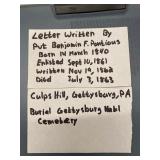 Letter Written By
Pvt Benjamin F. Pontious
Born 14 March 1840
Enlisted Sept 10, 1861
Written Nov 19, 1862
Died July 3, 1863
Culps Hill, Gettysburg, PA
Burial Gettysburg Natl
Cemetery